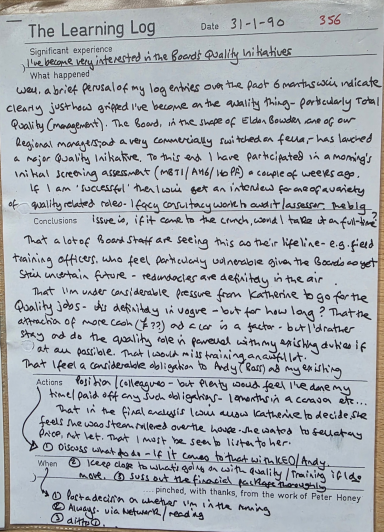 The Learning Log Date 31-1-90 356
Significant experience
I've become very interested in the Board's Quality Initiatives
What happened
Well, a brief perusal of my log entries over the past 6 months will indicate
clearly just how gripped I've become on the quality thing - particularly Total
Quality (management). The Board, in the shape of Eldon Bowden one of our
Regional managers and a very commercially switched on fella, - has launched
a major Quality Initiative. To this end I have participated in a morning's
initial screening assessment (MBTI/AH6/ ) a couple of weeks ago.
If I am 'successful' then I will get an interview for one of a variety
of quality related roles - consultancy work to audit/assessor. The big
Conclusions issue is, if it came to the crunch, would I take it on full-time?
That a lot of Board staff are seeing this as their lifeline - e.g. field
training officers, who feel particularly vulnerable given the Board's as yet
still uncertain future - redundancies are definitely in the air.
That I'm under considerable pressure from Katherine to go for the
Quality jobs - it's definitely in vogue - but for how long? That the
attraction of more cash (£??) and a car is a factor - but I'd rather
stay and do the quality role in parallel with my existing duties if
at all possible. That I would miss training an awful lot.
That I feel a considerable obligation to Andy (Ross) and my existing
Actions Position/Colleagues - but plenty would feel I've done my
time/paid off any such obligations - months in a caravan etc...
That in the final analysis I will allow Katherine to decide, she
feels she was steam rollered over the house - she wanted to sell at any
price, not let. That I must be seen to listen to her.
① Discuss what to do - if it comes to that with KEO/Andy.
When ② Keep close to what's going on with quality/Training if I do
move. ③ Suss out the financial package thoroughly
...pinched, with thanks, from the work of Peter Honey
① Post a decision on whether I'm in the running
② Always. via Network/reading
③ ditto ①.